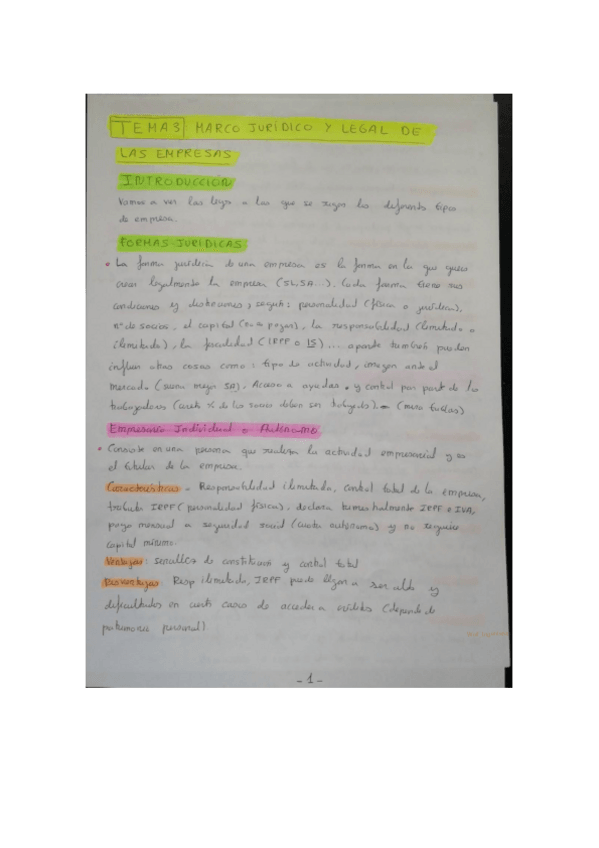 TEMA3 MARCO JURÍDICO Y LEGAL DE
LAS EMPRESAS
INTRODUCCIÓN
Vamos a ver las leyes a las que se rigen los diferentes tipos
de empresa.
FORMAS JURIDICAS
• La forma jurídica de una empresa es la forma en la que quieres
crear legalmente la empresa (SL, SA...). Cada forma tiene sus
condiciones y distinciones, según: personalidad (física o jurídica),
nº de socios, el capital (to a pagar), la responsabilidad (limitada o
ilimitada), la fiscalidad (IRPF o IS)... aparte también pueden
influir otras cosas como: tipo de actividad, imagen ante el
mercado (suena mejor SA), Acceso a ayudas, y control por parte de los
trabajadores (cierto % de los socios deben ser trabajads).
Empresario Individual o Autónomo:
• Consiste en una persona que realiza la actividad empresarial y es
el titular de la empresa.
Características - Responsabilidad ilimitada, control total de la empresa,
tributa IRPF (personalidad física), declara trimestralmente IRPF e IVA,
pago mensual a seguridad social (cuota autónomo) y no requiere
capital mínimo
Ventajas: sencillez de constitución y control total
Desventajas: Resp ilimitada, IRPF puede llegar a ser alto y
dificultades en cierto casos de acceder a créditos (depende de
patrimonio personal)
- 1 -